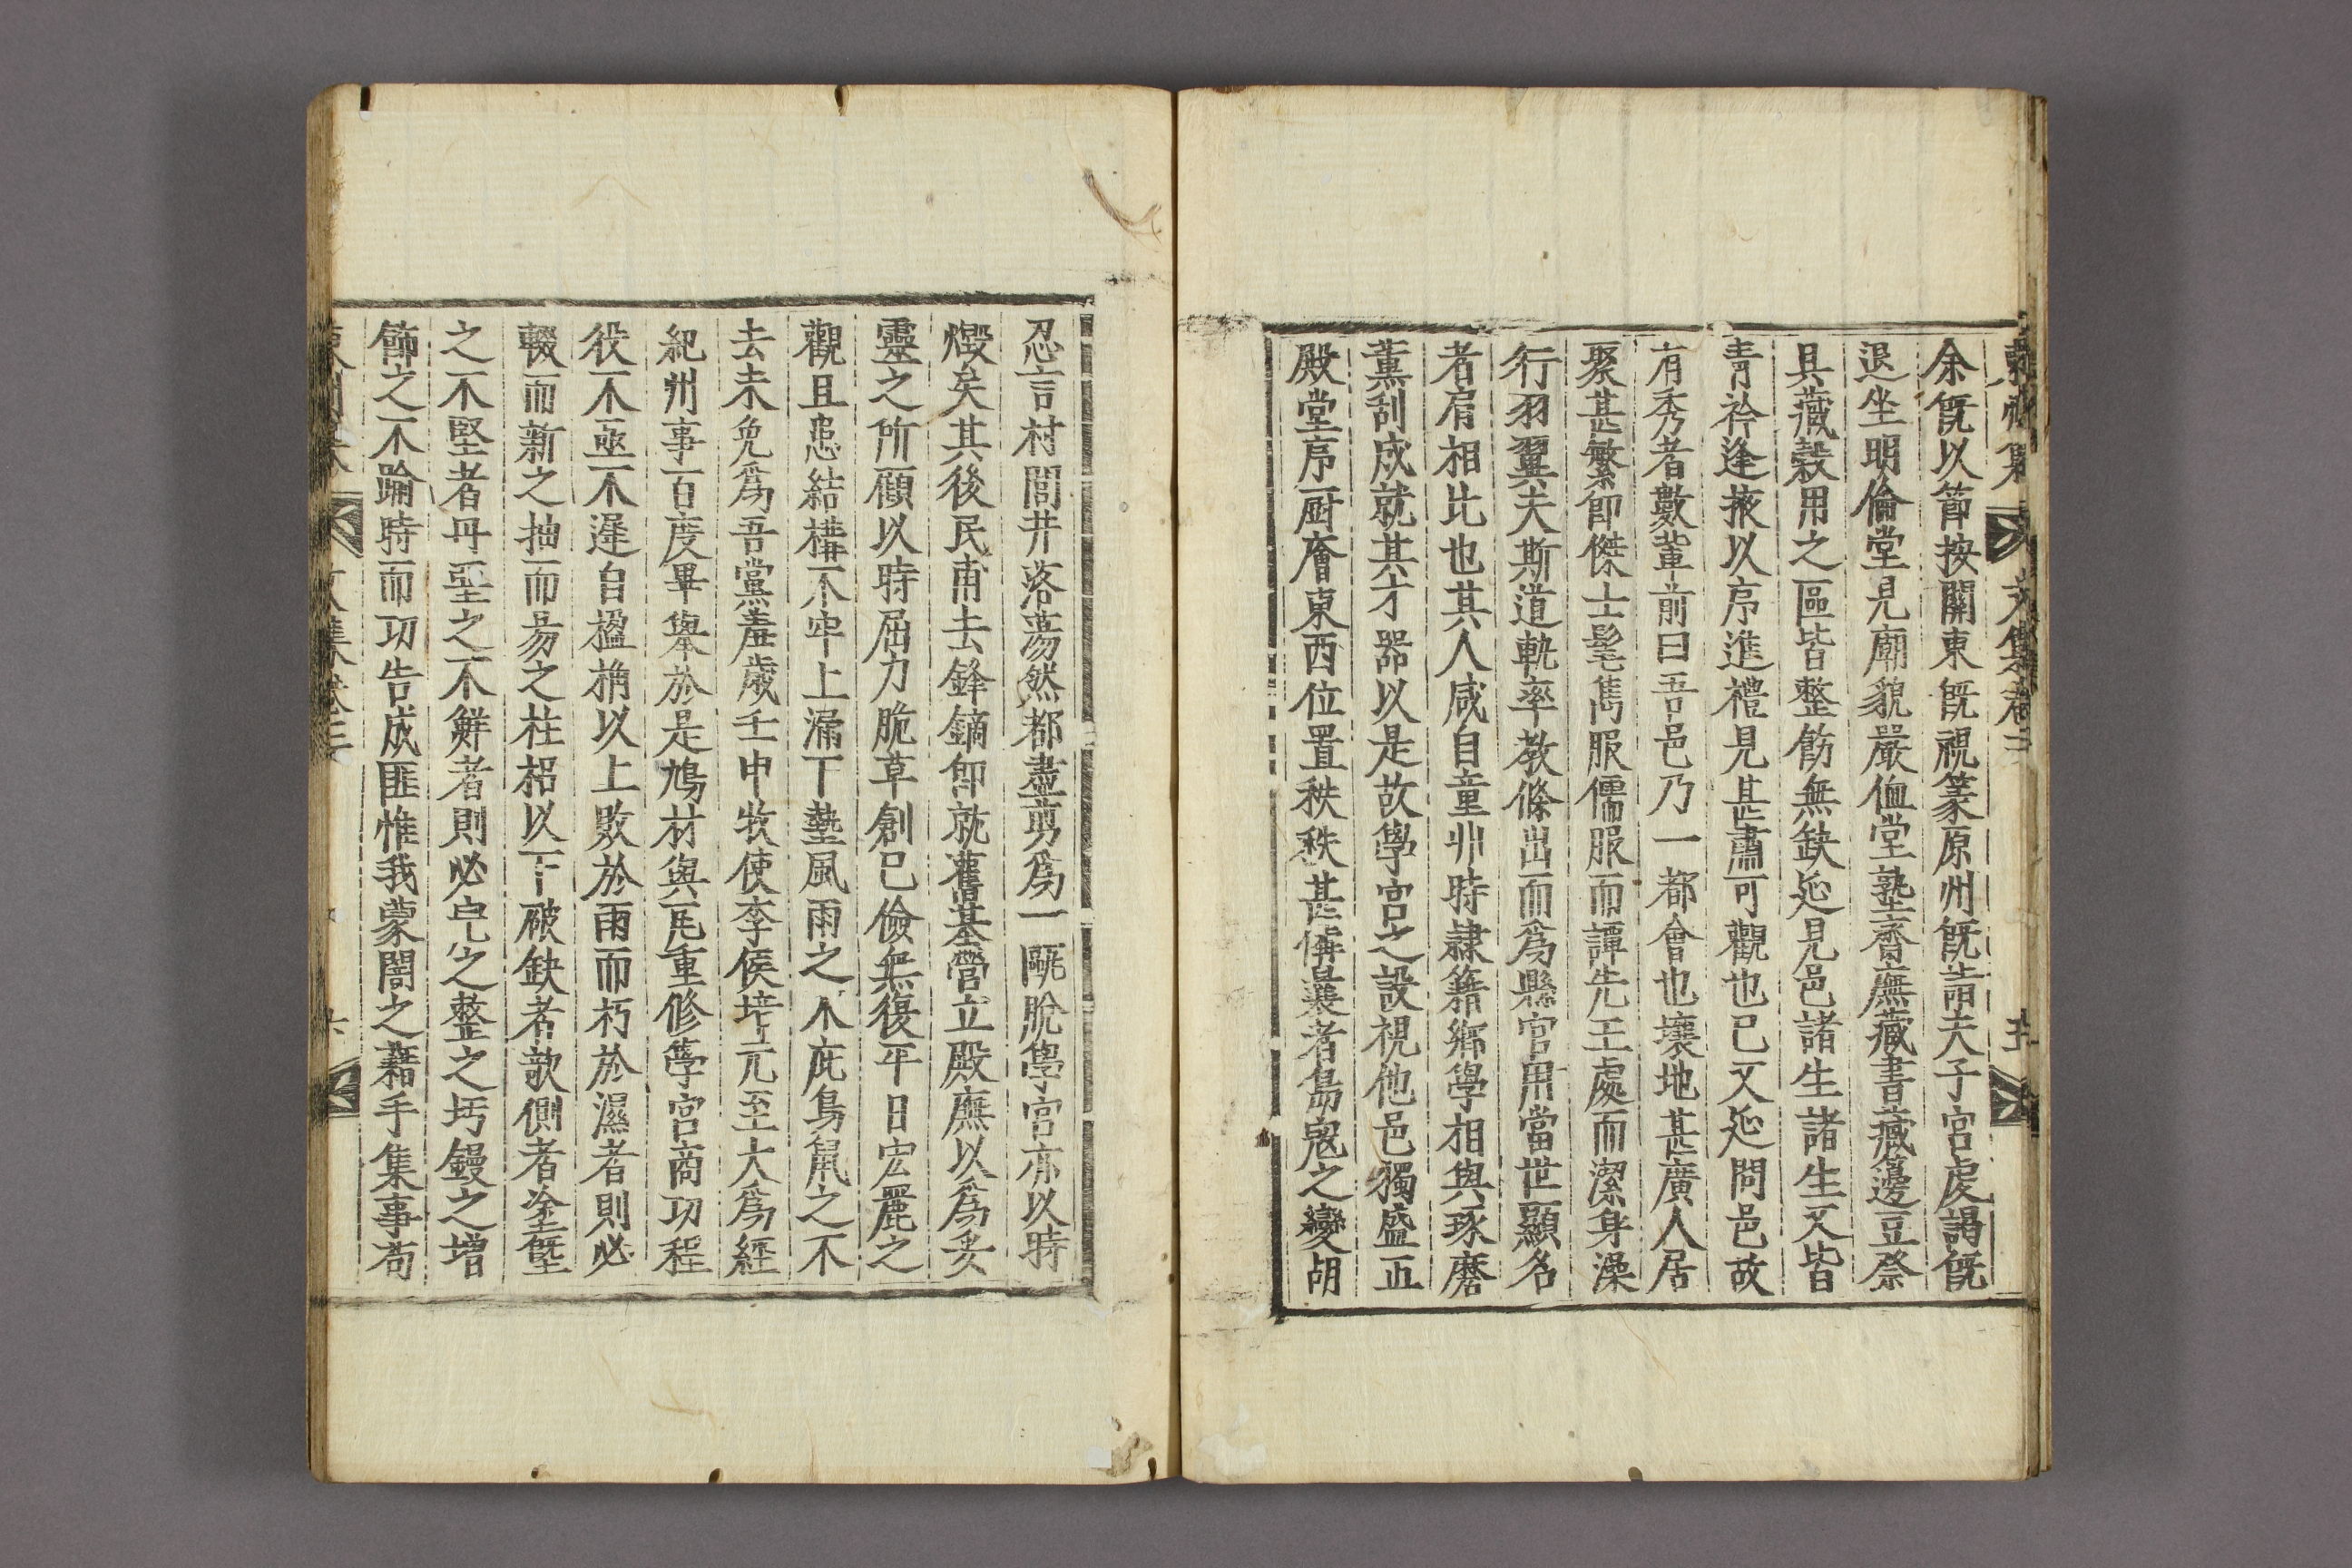 東州集 文集卷三 五
余旣以節按關東旣視篆原州旣詣夫子宮虔謁旣
退坐明倫堂見廟貌嚴侐堂塾齋廡藏書藏籩豆祭
具藏穀用之區皆整飭無缺延見邑諸生諸生又皆
靑衿逢掖以序進禮見甚肅可觀也已又延問邑故
有秀者數輩前曰吾邑乃一都會也壤地甚廣人居
聚甚繁卽傑士髦雋服儒服而譚先王處而潔身澡
行羽翼夫斯道軌率敎條出而爲縣官用當世顯名
者肩相比也其人咸自童丱時隷籍鄕學相與琢磨
薰刮成就其才器以是故學宮之設視他邑獨盛正
殿堂序厨廥東西位置秩秩甚備曩者島寇之變胡
忍言村閭井落蕩然都盡剪爲一甌脫學宮亦以時
燬矣其後民甫去鋒鏑卽就舊基營立殿廡以爲妥
靈之所顧以時屈力脆草創已儉無復平日宏麗之
觀且患結構不牢上漏下墊風雨之不庇鳥鼠之不
去未免爲吾黨羞歲壬申牧使李侯培元至大爲經
紀州事百度畢擧於是鳩材與瓦重修學宮商功程
役不亟不遲自楹桷以上敗於雨而朽於濕者則必
輟而新之抽而易之柱梠以下破缺者欹側者塗墍
之不堅者丹堊之不鮮者則必皃之整之圬鏝之增
飾之不踰時而功告成匪惟我蒙闇之藉手集事苟
東州集 文集卷三 六